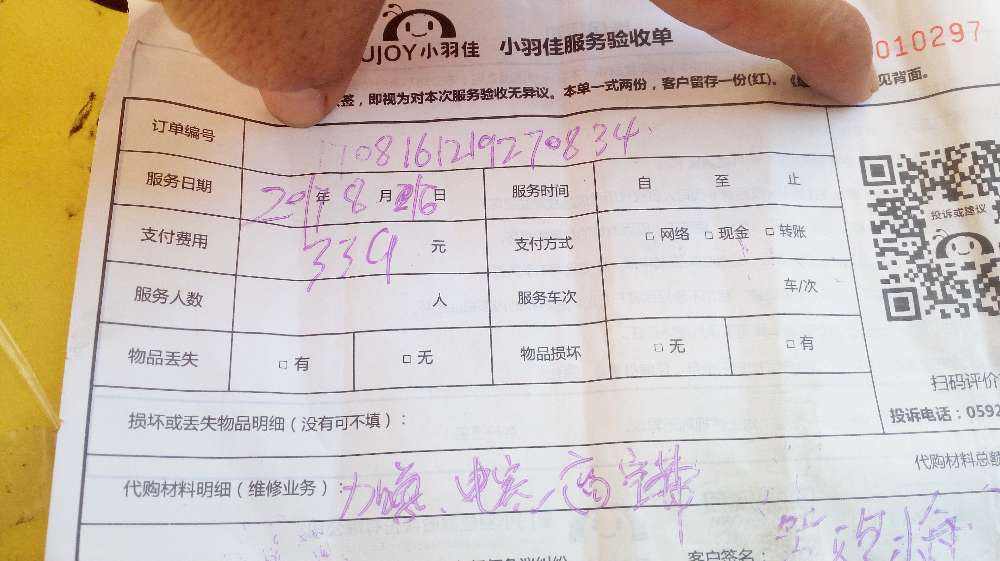 UJOY小羽佳 小羽佳服务验收单 010297
签，即视为对本次服务验收无异议。本单一式两份，客户留存一份(红)。 见背面。
订单编号 1708161219270834
服务日期 2017年8月26日 服务时间 自 至 止
支付费用 339元 支付方式 □ 网络 □ 现金 □ 转账
投诉或建议
服务人数 人 服务车次 车/次
物品丢失 □ 有 □ 无 物品损坏 □ 无 □ 有
扫码评价
损坏或丢失物品明细（没有可不填）：
投诉电话：0592
代购材料总额
代购材料明细（维修业务）：加
客户签名：